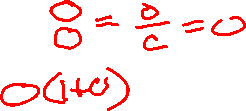 0/0 = 0/c = 0
0(1+0)